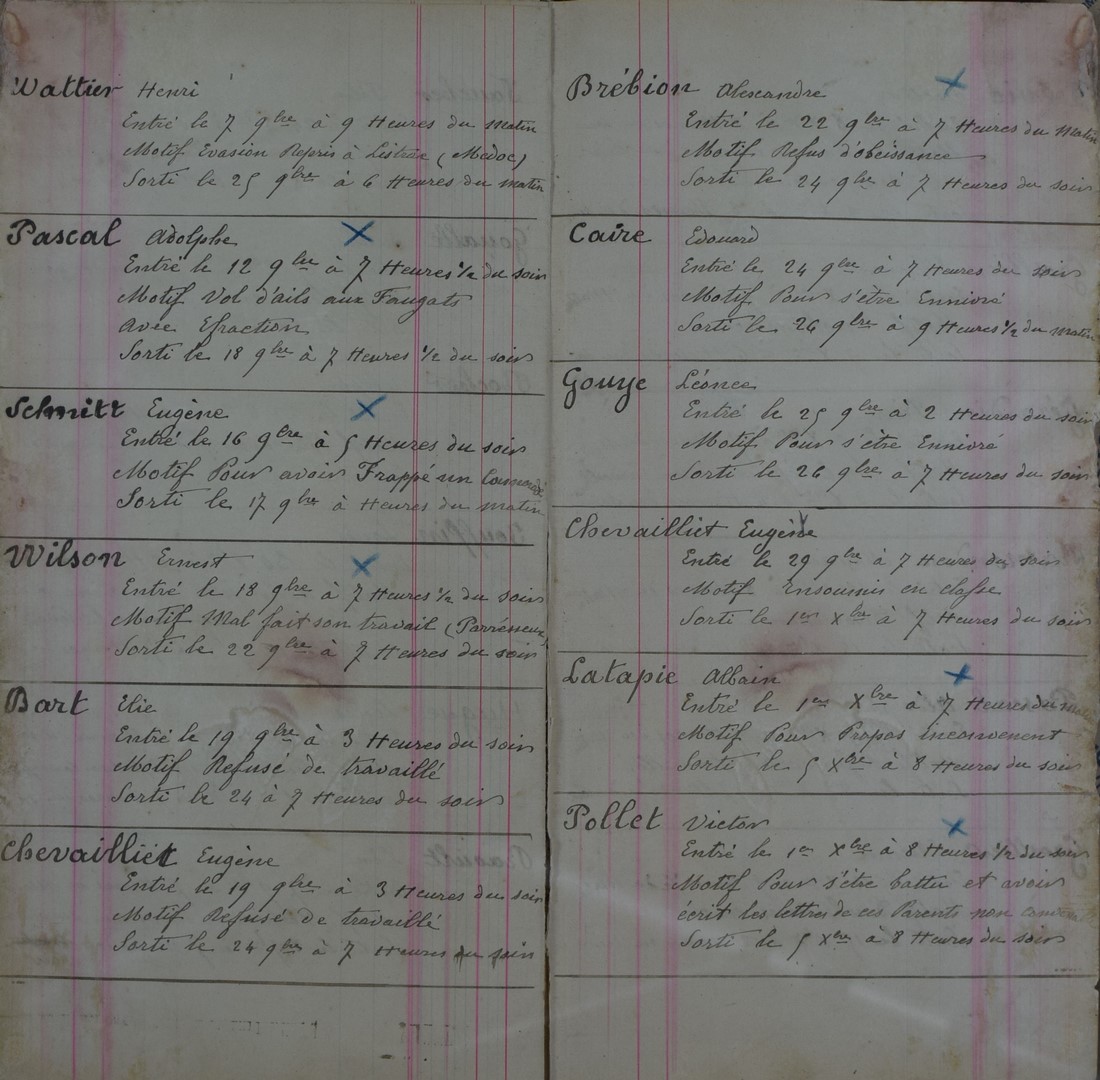 Wattier Henri
Entré le 7 9bre à 9 Heures du matin
Motif Evasion Repris à Listrac (Médoc)
Sorti le 25 9bre à 6 Heures du matin
Pascal Adolphe
Entré le 12 9bre à 7 Heures 1/2 du soir
Motif Vol d'ails aux Faugats
Avec Efraction
Sorti le 18 9bre à 7 Heures 1/2 du soir
Schmitt Eugène
Entré le 16 9bre à 5 Heures du soir
Motif Pour avoir Frappé un Camarade
Sorti le 17 9bre à Heures du matin
Wilson Ernest
Entré le 18 9bre à 7 Heures 1/2 du soir
Motif Mal fait son travail (Parresseux)
Sorti le 22 9bre à 7 Heures du soir
Bart Elie
Entré le 19 9bre à 3 Heures du soir
Motif Refusé de travaillé
Sorti le 24 à 7 Heures du soir
Chevailliet Eugène
Entré le 19 9bre à 3 Heures du soir
Motif Refusé de travaillé
Sorti le 24 9bre à 7 Heures du soir
Brébion Alexandre
Entré le 22 9bre à 7 Heures du matin
Motif Refus d'obeissance
Sorti le 24 9bre à 7 Heures du soir
Caire Edouard
Entré le 24 9bre à 7 Heures du soir
Motif Pour s'être Ennivré
Sorti le 26 9bre à 9 Heures 1/2 du matin
Gouye Léonce
Entré le 25 9bre à 2 Heures du soir
Motif Pour s'être Ennivré
Sorti le 26 9bre à 7 Heures du soir
Chevailliet Eugène
Entré le 29 9bre à 7 Heures du soir
Motif Insoumis en classe
Sorti le 1er Xbre à 7 Heures du soir
Latapie Albain
Entré le 1er Xbre à 7 Heures du matin
Motif Pour Propos inconvenent
Sorti le 5 Xbre à 8 Heures du soir
Pollet Victor
Entré le 1er Xbre à 8 Heures 1/2 du soir
Motif Pour s'être battu et avoir
écrit les lettres de ces Parents non
Sorti le 5 Xbre à 8 Heures du soir